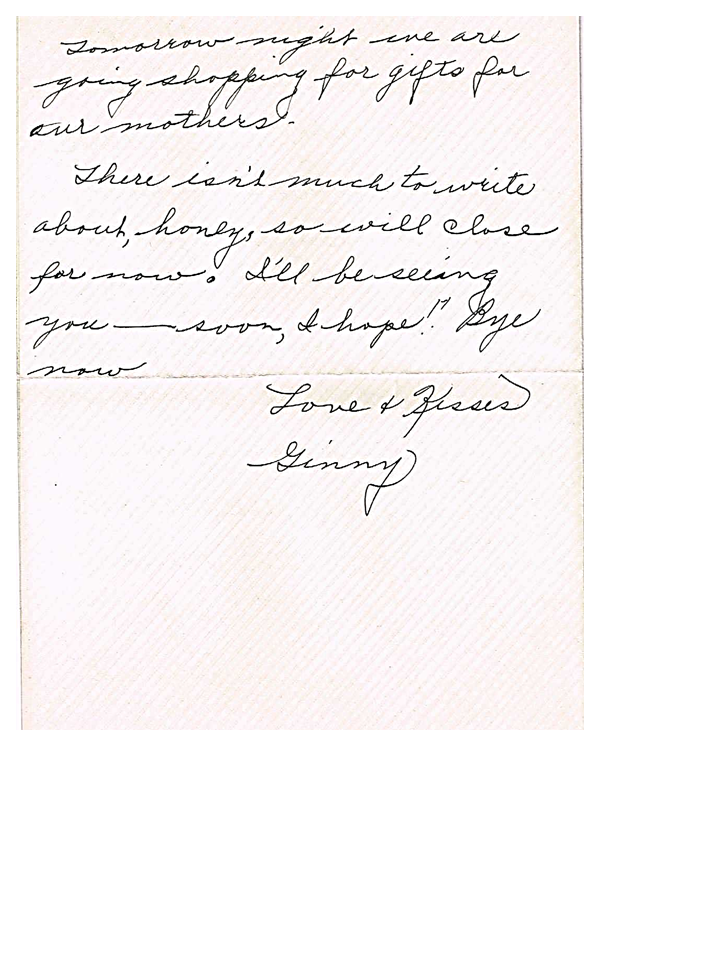 Tomorrow night we are
going shopping for gifts for
our mothers.
There isn't much to write
about, honey, so will close
for now. I'll be seeing
you — soon, I hope!" Bye
now
Love & Kisses
Ginny